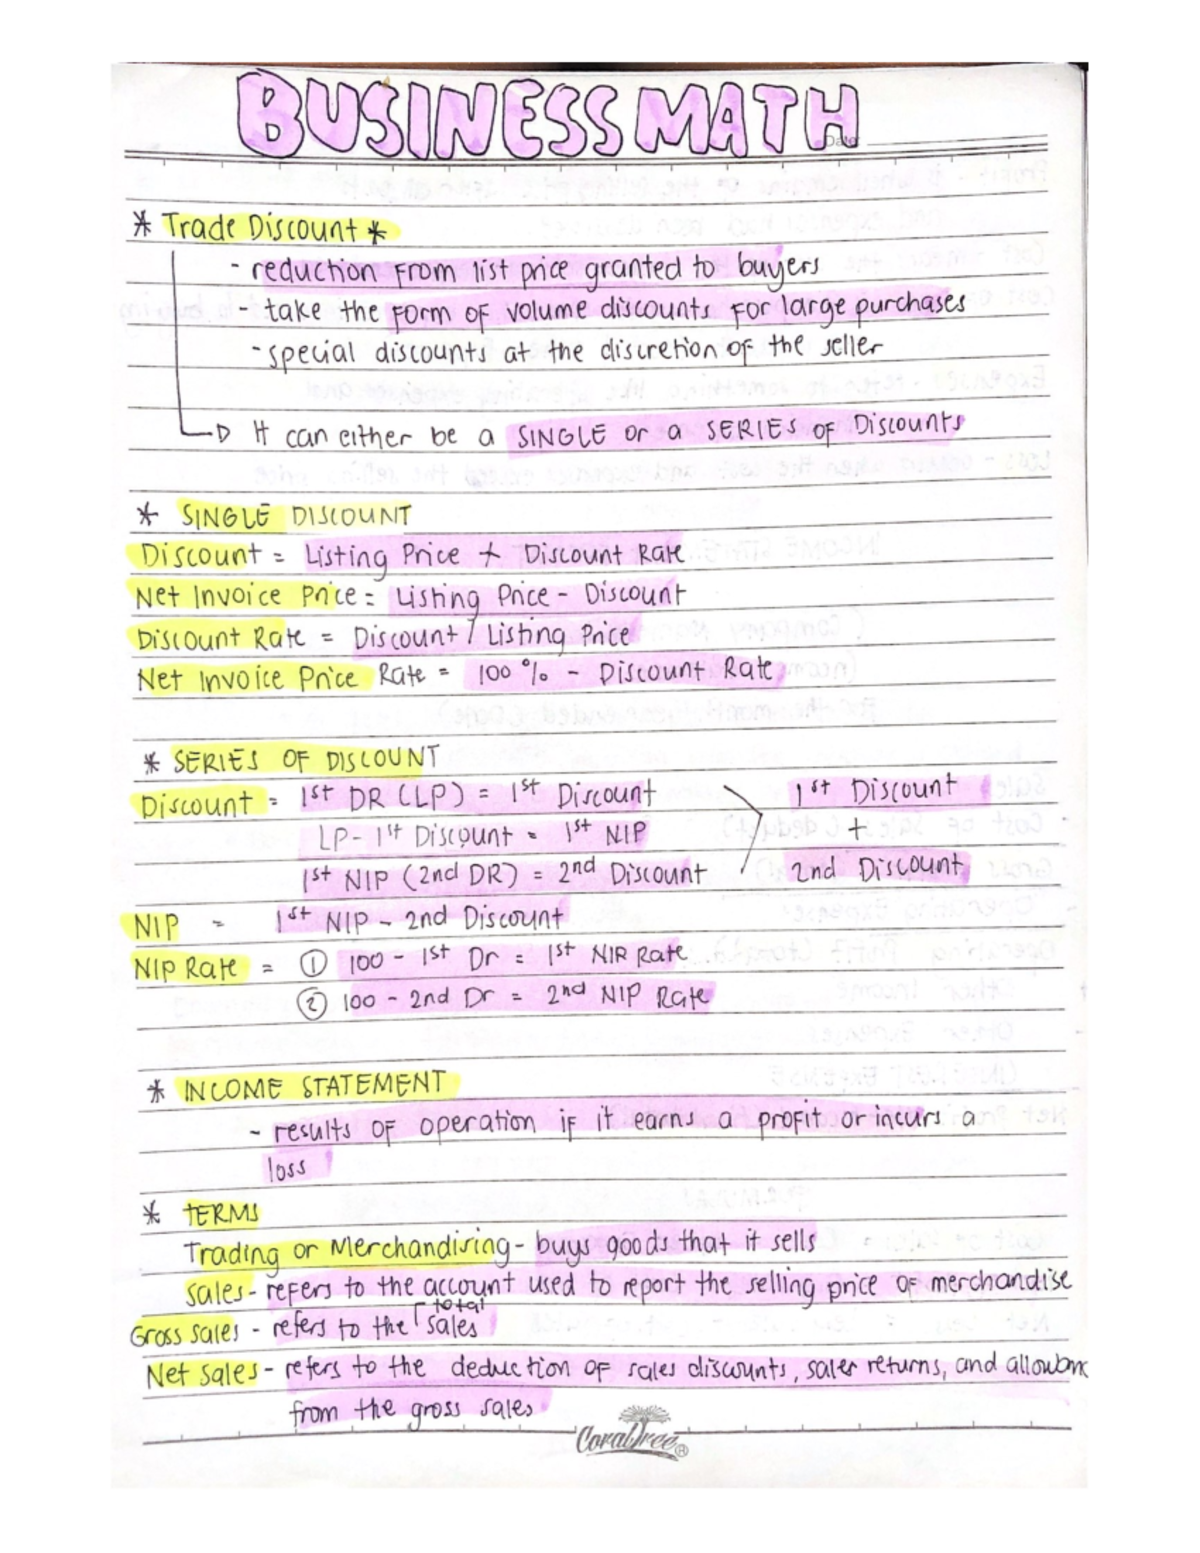 BUSINESS MATH
Date:
* Trade Discount *
- reduction from list price granted to buyers
- take the form of volume discounts for large purchases
- special discounts at the discretion of the seller
It can either be a SINGLE or a SERIES of Discounts
* SINGLE DISCOUNT
Discount = Listing Price + Discount Rate
Net Invoice Price = Listing Price - Discount
Discount Rate = Discount / Listing Price
Net Invoice Price Rate = 100 % - Discount Rate
* SERIES OF DISCOUNT
Discount = 1st DR (LP) = 1st Discount 1st Discount
LP - 1st Discount = 1st NIP +
1st NIP (2nd DR) = 2nd Discount 2nd Discount
NIP = 1st NIP - 2nd Discount
NIP Rate = ① 100 - 1st Dr = 1st NIR Rate
② 100 - 2nd Dr = 2nd NIP Rate
* INCOME STATEMENT
- results of operation if it earns a profit or incurs a
loss
* TERMS
Trading or Merchandising - buys goods that it sells
Sales - refers to the account used to report the selling price of merchandise
Gross sales - refers to the total sales
Net sales - refers to the deduction of sales discounts, saler returns, and allowanc
from the gross sales
CoralTree ®